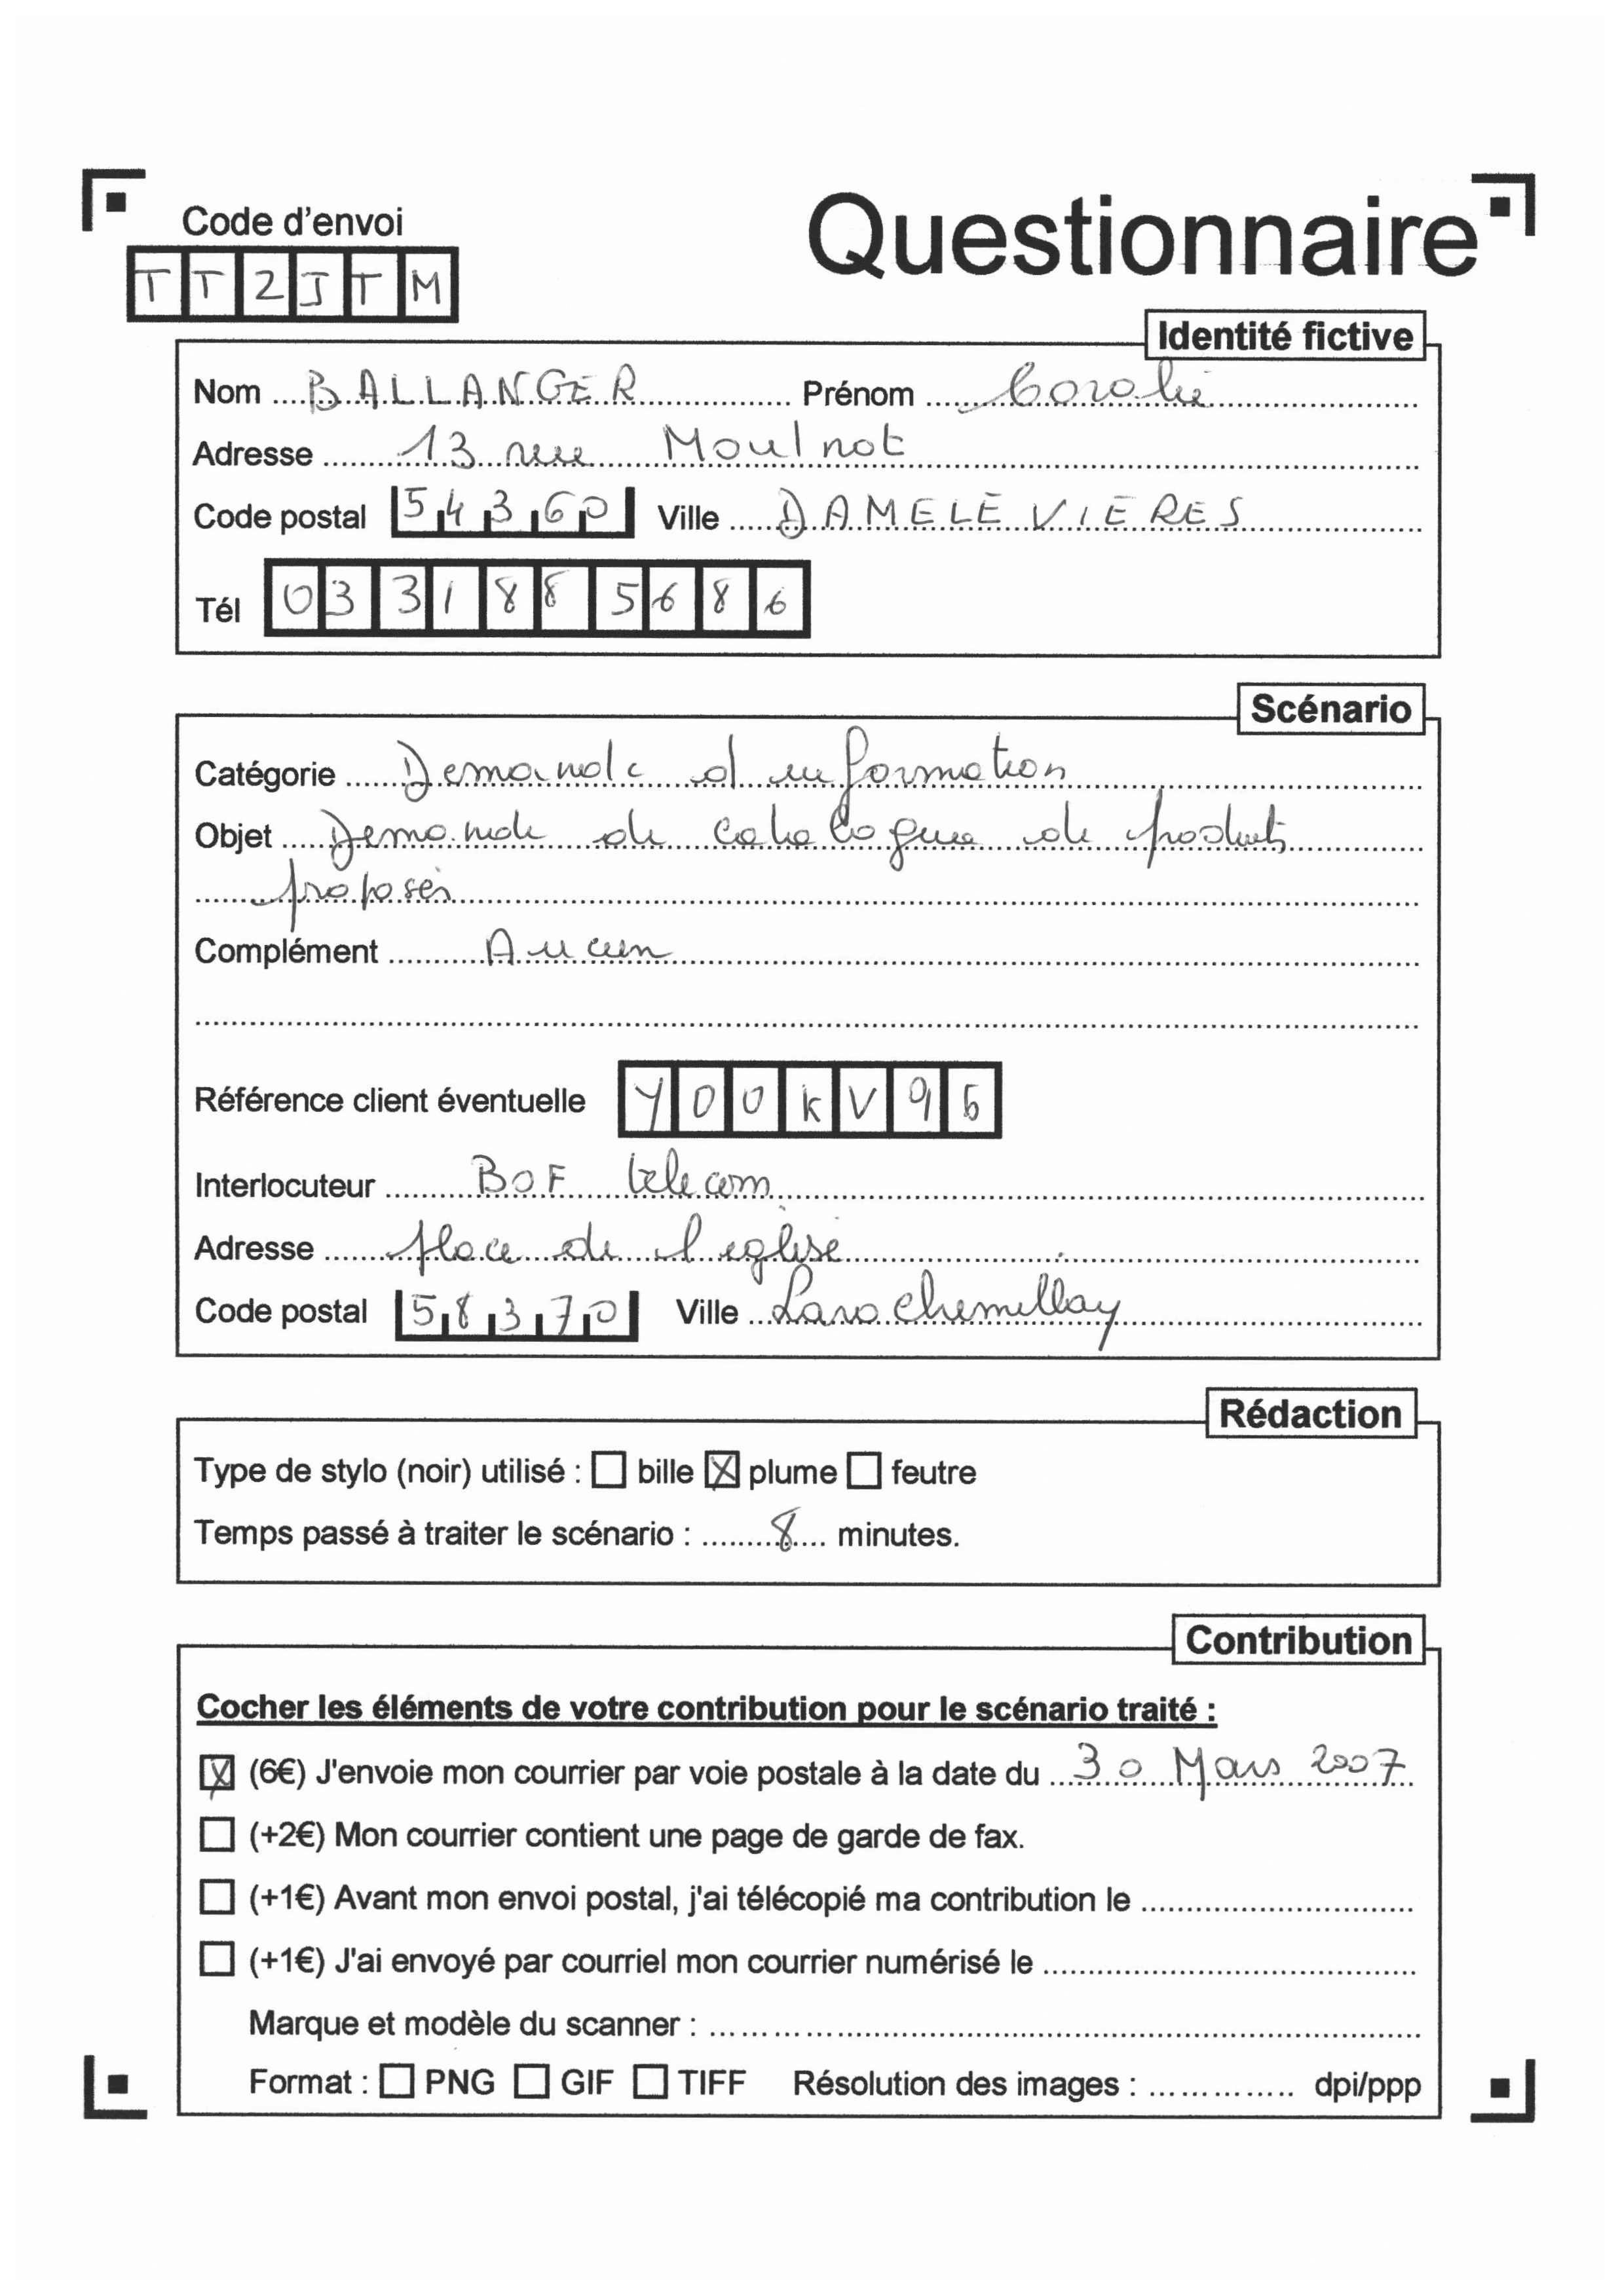 Code d'envoi
Questionnaire
TT2JTM
Identité fictive
Nom BALLANGER Prénom Coralie
Adresse 13 rue Moulnot
Code postal 54360 Ville DAMELEVIERES
Tél 0331885686
Scénario
Catégorie Demande d'information
Objet Demande de catalogue de produits
proposés
Complément Aucun
Référence client éventuelle Y00KV95
Interlocuteur BOF telecom
Adresse place de l'église
Code postal 58370 Ville Larochemillay
Rédaction
Type de stylo (noir) utilisé : ☐ bille ☒ plume ☐ feutre
Temps passé à traiter le scénario : 8 minutes.
Contribution
Cocher les éléments de votre contribution pour le scénario traité :
☒ (6€) J'envoie mon courrier par voie postale à la date du 30 Mars 2007
☐ (+2€) Mon courrier contient une page de garde de fax.
☐ (+1€) Avant mon envoi postal, j'ai télécopié ma contribution le
☐ (+1€) J'ai envoyé par courriel mon courrier numérisé le
Marque et modèle du scanner :
Format : ☐ PNG ☐ GIF ☐ TIFF Résolution des images : dpi/ppp